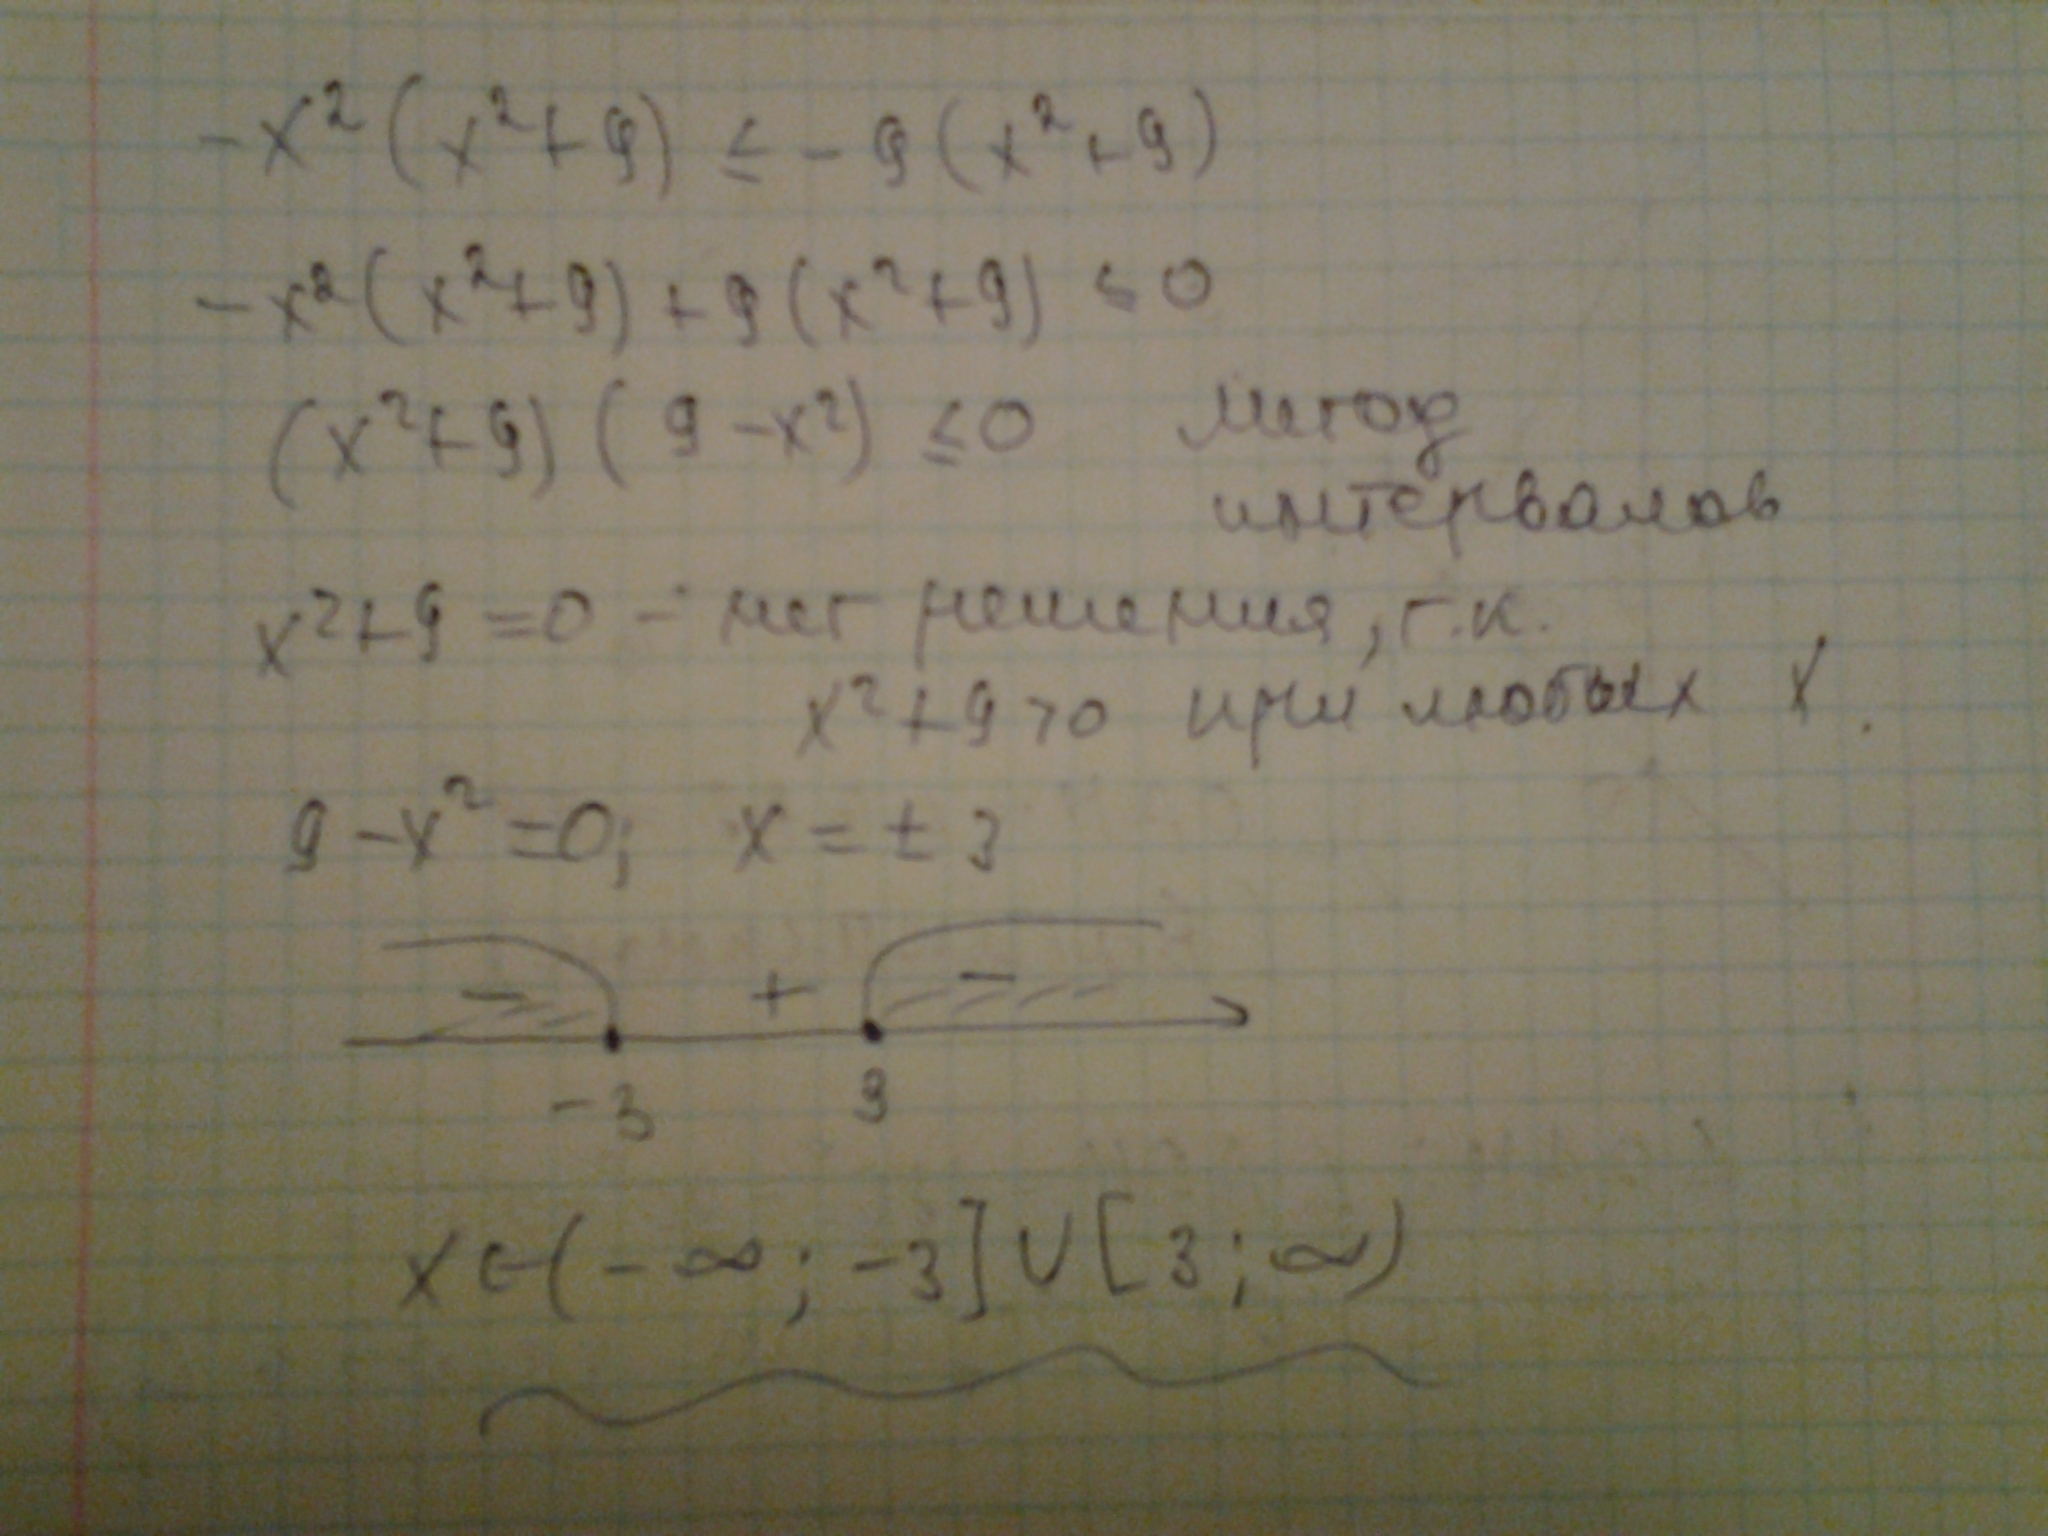 -x²(x²+9) ≤ -9(x²+9)
-x²(x²+9)+9(x²+9) ≤ 0
(x²+9)(9-x²) ≤ 0 метод
интервалов
x²+9=0 - нет решения, т.к.
x²+9>0 при любых x.
9-x²=0; x=±3
- + -
-3 3
x∈(-∞;-3]∪[3;∞)